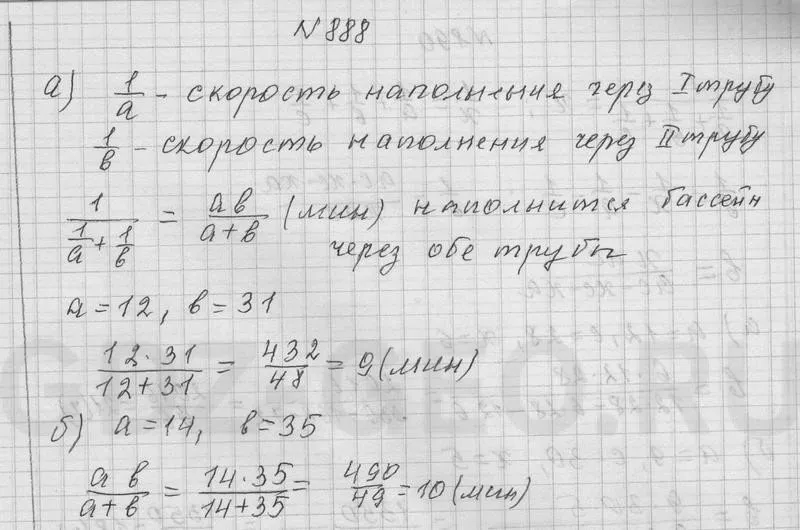 N 888
а) 1/а - скорость наполнения через I трубу
1/в - скорость наполнения через II трубу
1/(1/а + 1/в) = ав/(а+в) (мин) наполнится бассейн
через обе трубы
а = 12, в = 31
12·31/(12+31) = 432/48 = 9 (мин)
б) а = 14, в = 35
а в/(а+в) = 14·35/(14+35) = 490/49 = 10 (мин)